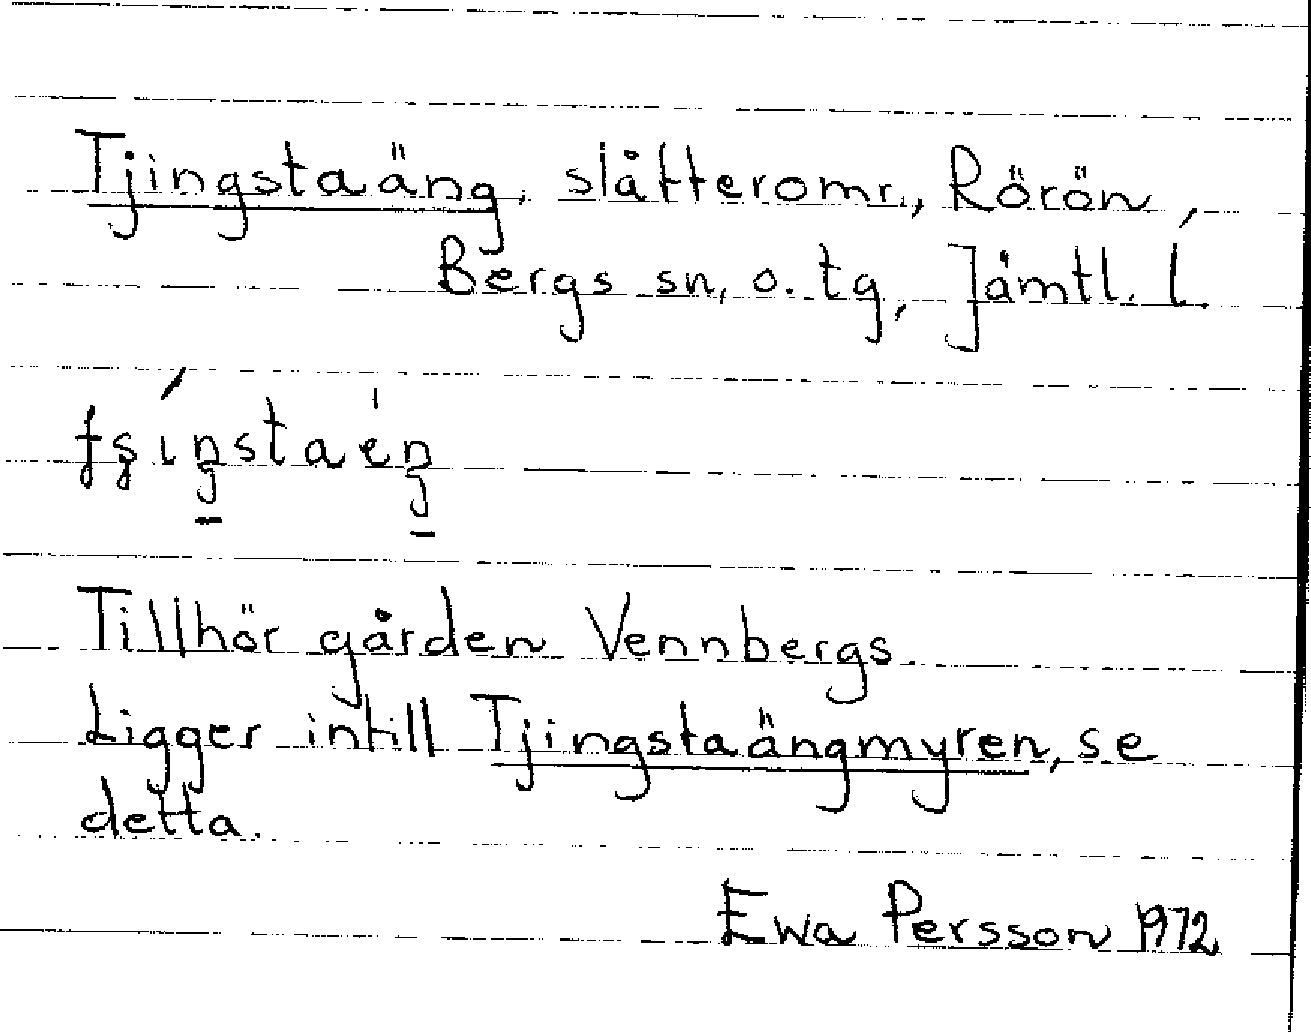 Tjingstaäng, slåtteromr., Rörön,
Bergs sn, o. tg, Jämtl. l.
Tillhör gården Vennbergs.
Ligger intill Tjingstaängmyren, se
detta.
Ewa Persson 1972